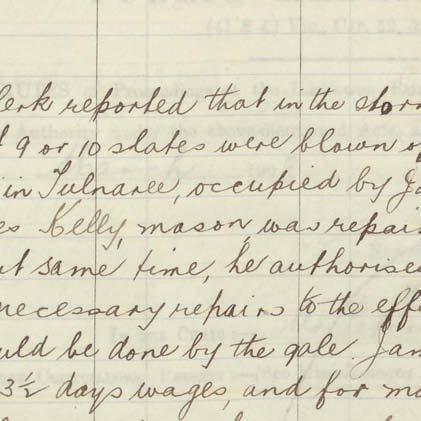 lerk reported that in the stor
9 or 10 slates were blown o
in Tulnaree, occupied by Ja
es Kelly, mason was repair
ut same time, he authorise
necessary repairs to the eff
uld be done by the gale. Jam
3½ days wages, and for ma